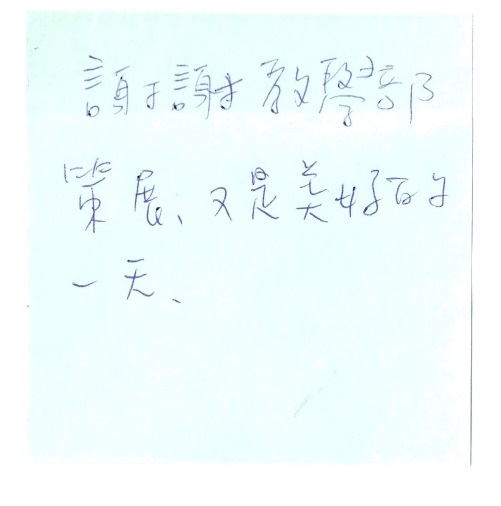 謝謝教學部
策展、又是美好的
一天、